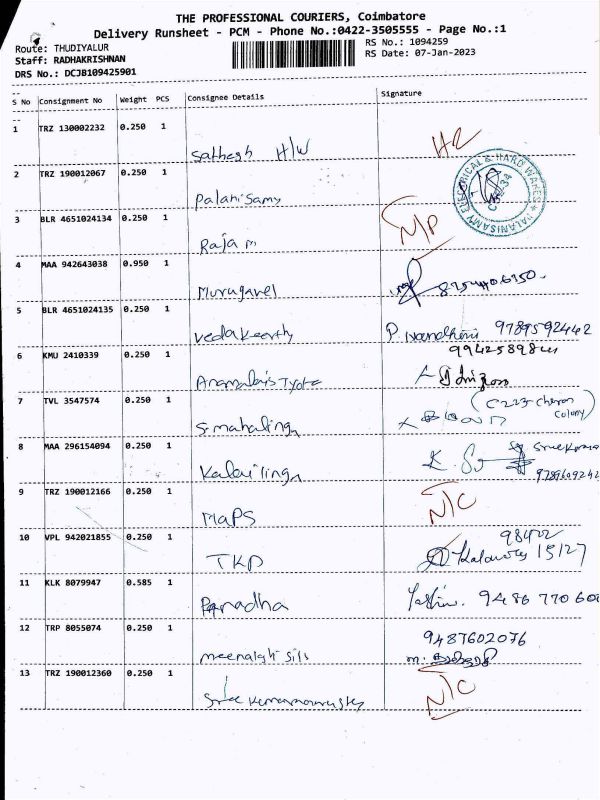 THE PROFESSIONAL COURIERS, Coimbatore
Delivery Runsheet - PCM - Phone No.:0422-3505555 - Page No.:1
Route: THUDIYALUR
Staff: RADHAKRISHNAN
DRS No.: DCJB109425901
RS No.: 1094259
RS Date: 07-Jan-2023
S No Consignment No Weight PCS Consignee Details Signature
1 TRZ 130002232 0.250 1
Sathesh H/W
2 TRZ 190012067 0.250 1
Palanisamy
PALANISAMY ELECTRICAL & HARDWARES
3 BLR 4651024134 0.250 1
Rajam
4 MAA 942643038 0.950 1
Murugavel
5 BLR 4651024135 0.250 1
Veda Keerthy P. Nandhini 9789592442
6 KMU 2410339 0.250 1
7 TVL 3547574 0.250 1
S. mahalinga
(C-223-cheran colony)
8 MAA 296154094 0.250 1
Kalailinga
9 TRZ 190012166 0.250 1
MAPS N/C
10 VPL 942021855 0.250 1
TKP 98422 15127
11 KLK 8079947 0.585 1
9486 770 600
12 TRP 8055074 0.250 1
9487602076
13 TRZ 190012360 0.250 1
N/C